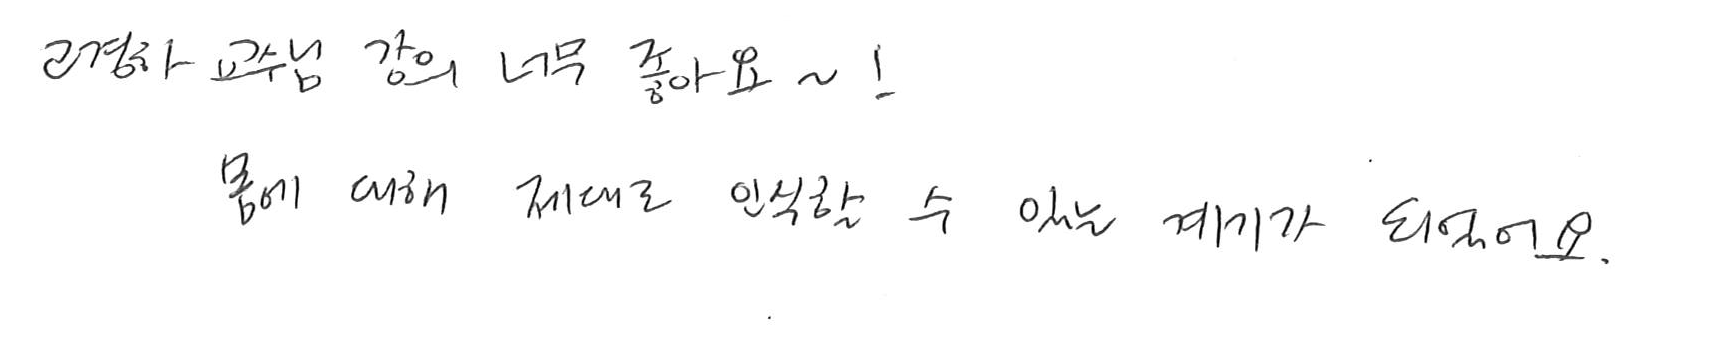 고경하 교수님 강의 너무 좋아요~!
몸에 대해 제대로 인식할 수 있는 계기가 되었어요.